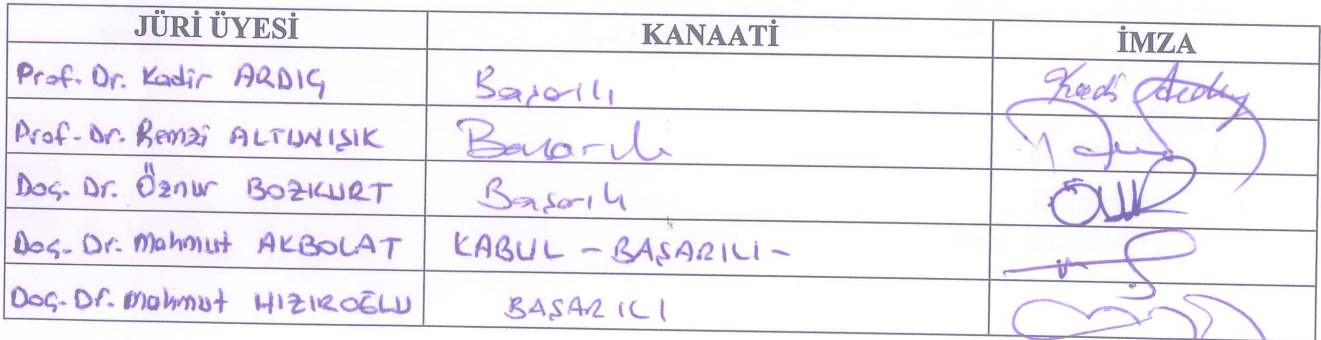 JÜRİ ÜYESİ KANAATİ İMZA
Prof. Dr. Kadir ARDIÇ Başarılı
Prof. Dr. Remzi ALTUNIŞIK Başarılı
Doç. Dr. Öznur BOZKURT Başarılı
Doç. Dr. Mahmut AKBOLAT KABUL - BAŞARILI -
Doç. Dr. Mahmut HIZIROĞLU BAŞARILI